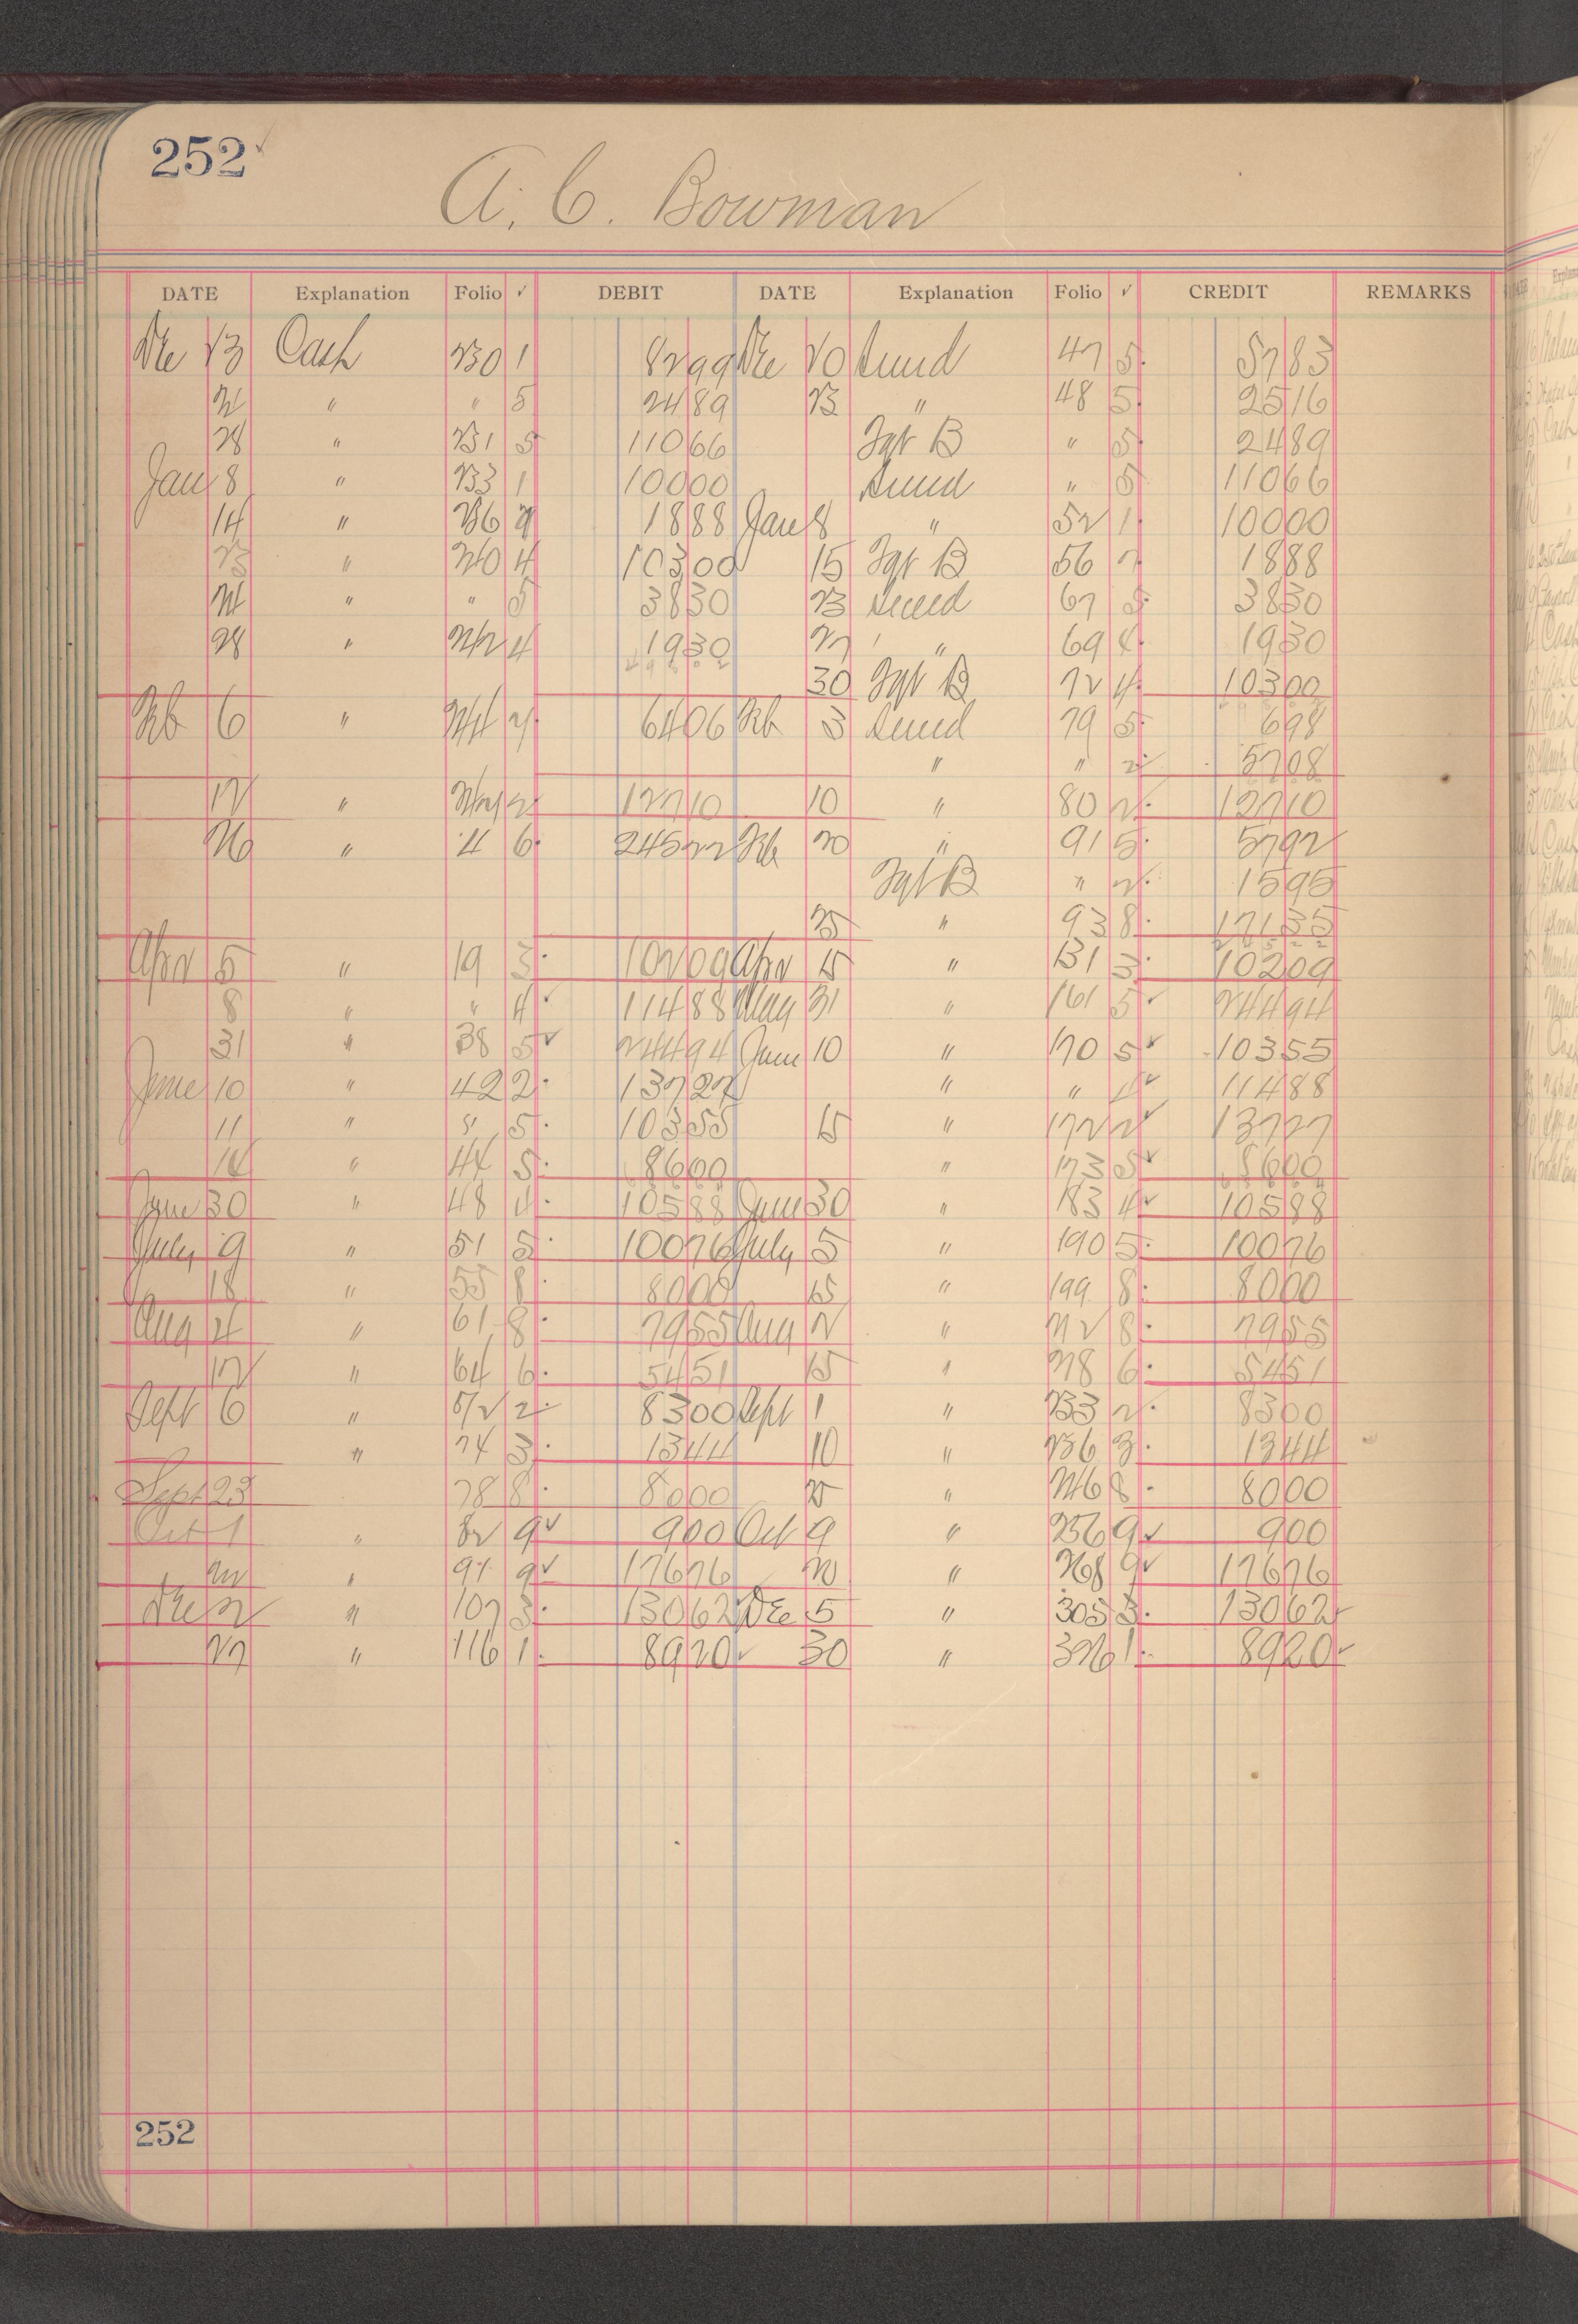 252 ✓
A. C. Bowman
DATE Explanation Folio ✓ DEBIT DATE Explanation Folio ✓ CREDIT REMARKS
Dec 23 Cash 230 1 82 99 Dec 20 Sund 47 5 57 83
24 " " 5 24 89 23 " 48 5 25 16
28 " 231 5 110 66 Sgt B " 5 24 89
Jan 8 " 233 1 100 00 Sund " 5 110 66
14 " 236 2 18 88 Jan 8 " 52 1 100 00
23 " 240 4 103 00 15 Sgt B 56 2 18 88
24 " " 5 38 30 23 Sund 67 5 38 30
28 " 242 4 19 30 27 " 69 4 19 30
30 Sgt B 72 4 103 00
Feb 6 " 244 2 64 06 Feb 3 Sund 79 5 6 98
" " 2 57 08
12 " 2 127 10 10 " 80 2 127 10
26 " 4 6 245 22 Feb 20 " 91 5 57 92
Sgt B " 2 15 95
25 " 93 8 171 35
Apr 5 " 19 3 102 09 Apr 15 " 131 3 102 09
8 " " 4 114 88 May 31 " 161 5 244 94
31 " 38 5 244 94 June 10 " 170 5 103 55
June 10 " 42 2 137 27 " " 4 114 88
11 " " 5 103 55 15 " 172 2 137 27
14 " 44 5 86 00 " 173 5 86 00
June 30 " 48 4 105 88 June 30 " 183 4 105 88
July 9 " 51 5 100 76 July 5 " 190 5 100 76
18 " 55 8 80 00 15 " 199 8 80 00
Aug 4 " 61 8 79 55 Aug 2 " 212 8 79 55
12 " 64 6 54 51 15 " 218 6 54 51
Sept 6 " 72 2 83 00 Sept 1 " 233 2 83 00
" 74 3 13 44 10 " 236 3 13 44
Sept 23 78 8 80 00 25 " 246 8 80 00
Oct 1 " 82 9 9 00 Oct 9 " 256 9 9 00
22 " 91 9 176 76 20 " 268 9 176 76
Dec 2 " 107 3 130 62 Dec 5 " 305 3 130 62
27 " 116 1 89 20 30 " 326 1 89 20
252